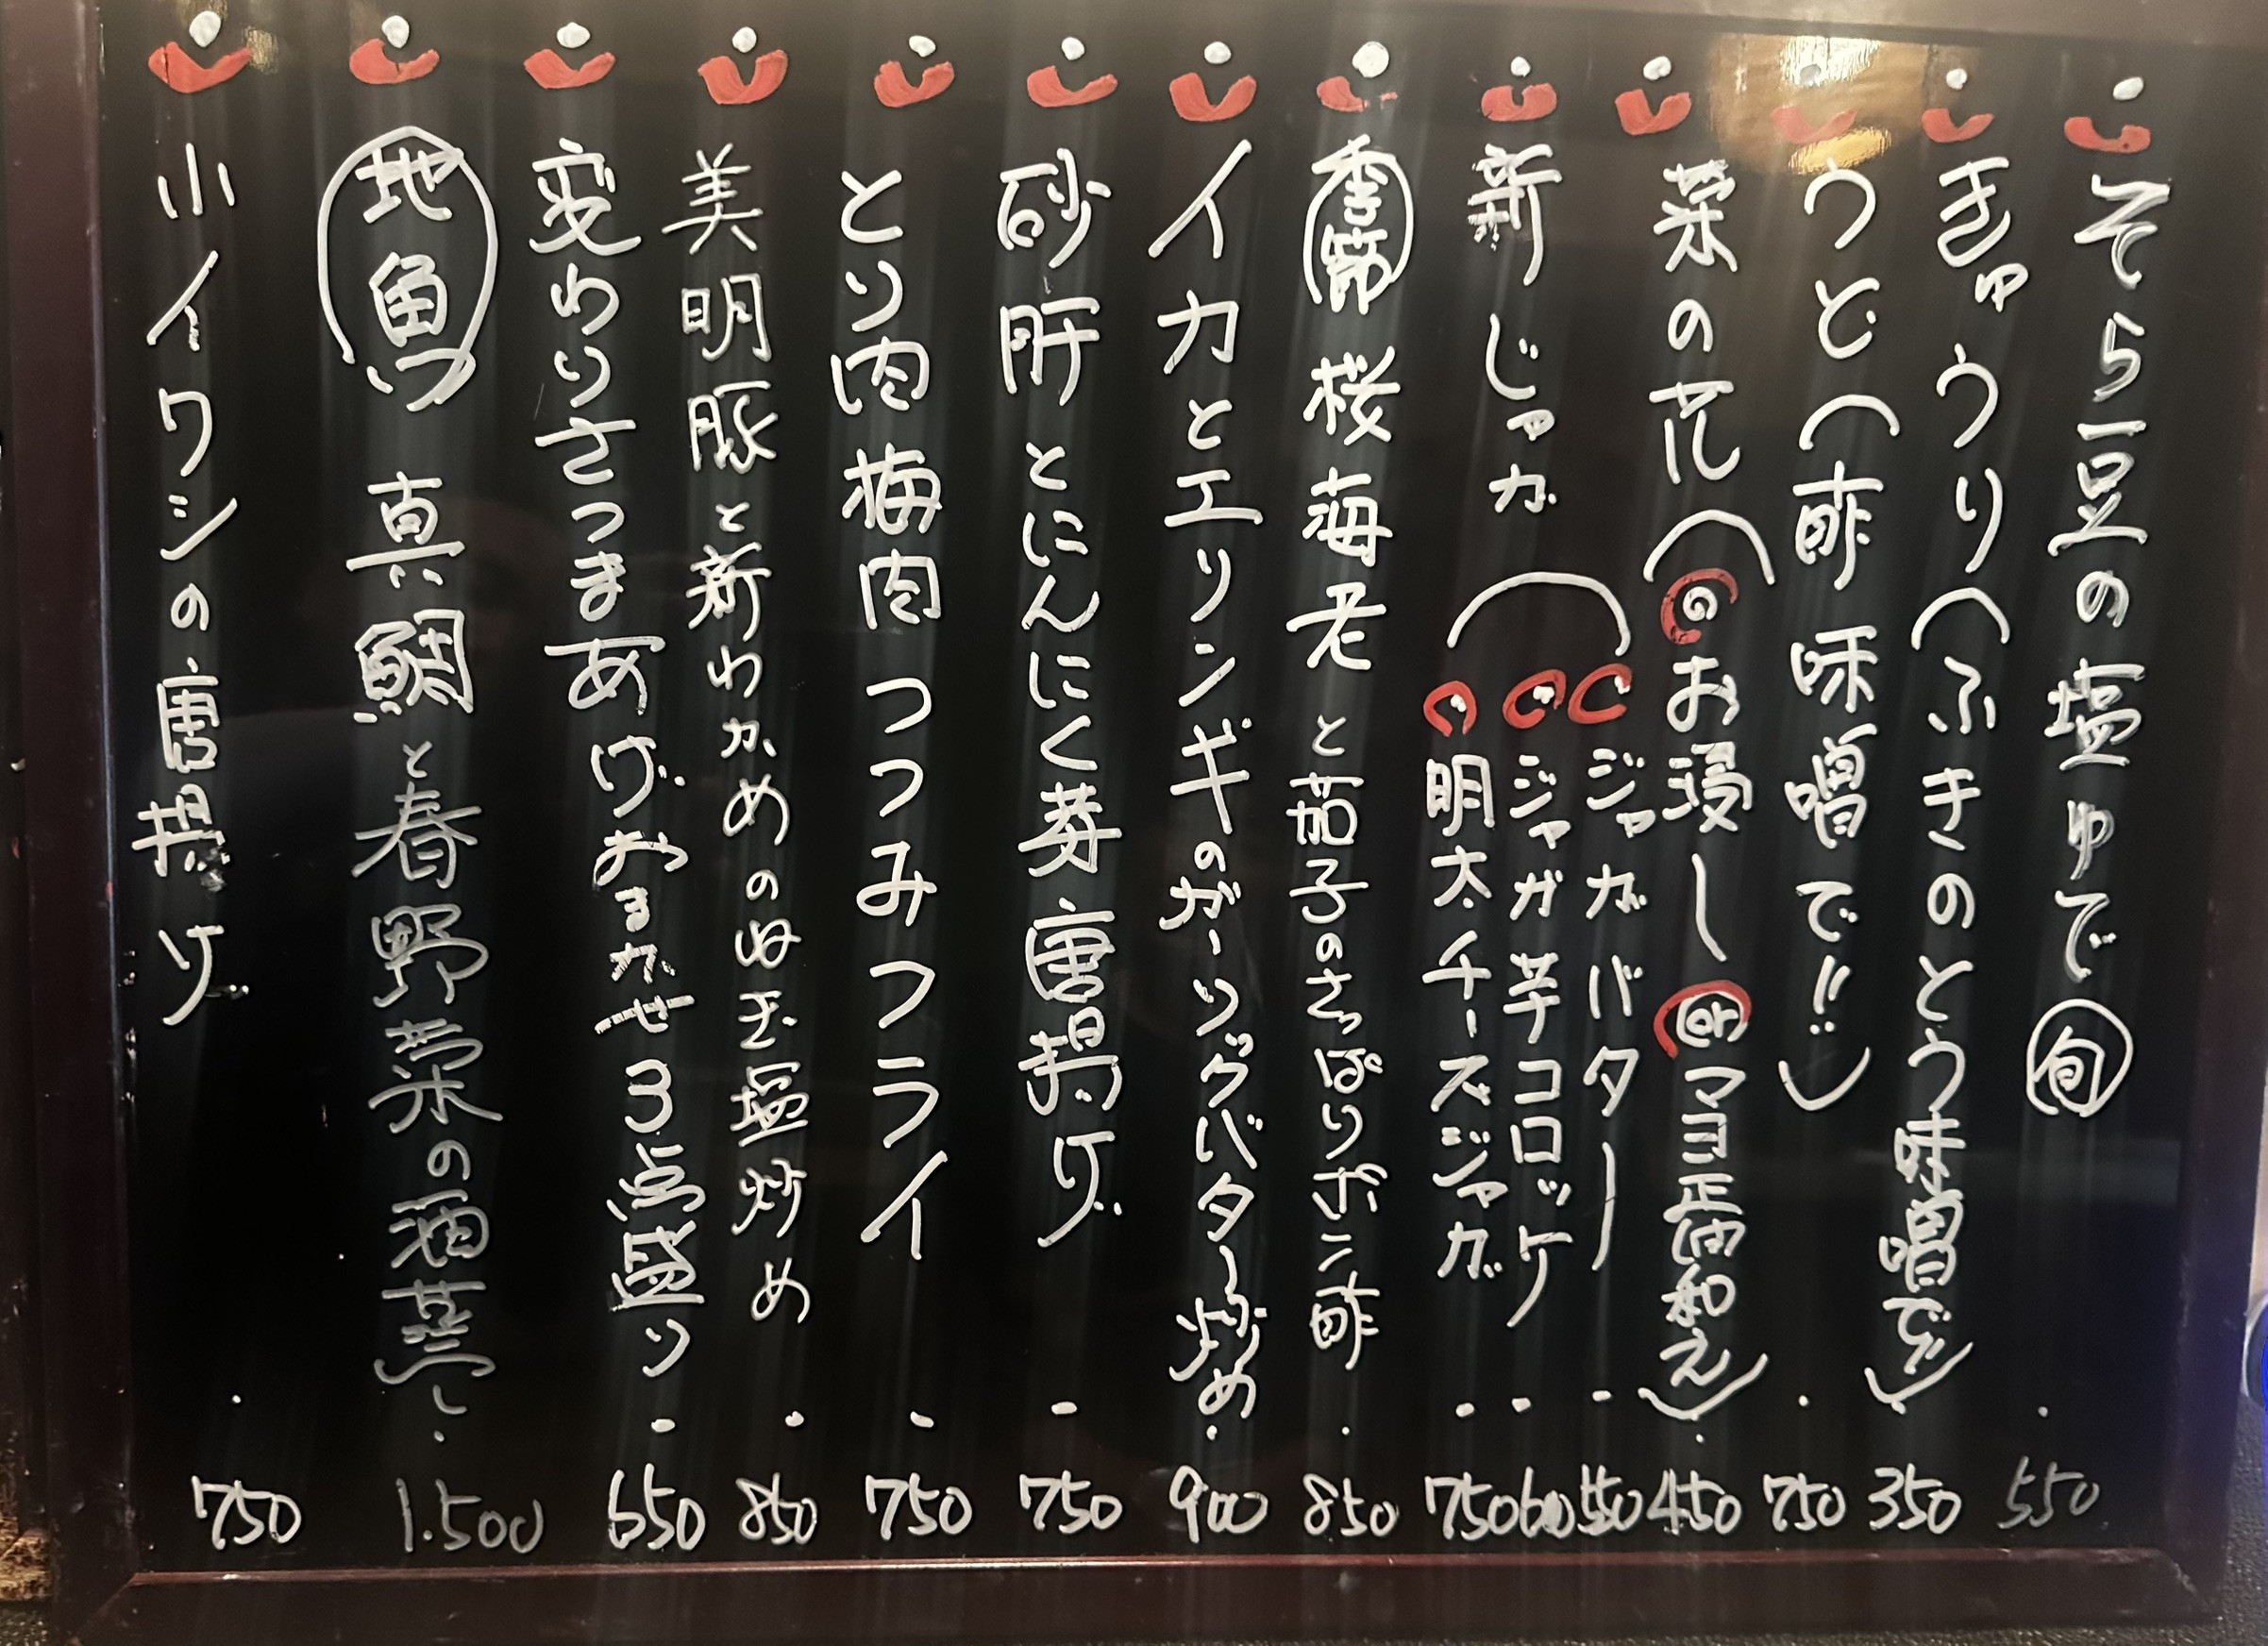 そら豆の塩ゆで 旬 ・ 550
きゅうり(ふきのとう味噌で!!)・ 350
うど(酢味噌で!!) ・ 750
菜の花(お浸し or マヨ正油和え)・ 450
新じゃが(
ジャガバター ・ 550
ジャガ芋コロッケ ・ 600
明太チーズジャガ ・ 750
季節 桜海老と茄子のさっぱりポン酢 ・ 850
イカとエリンギのガーリックバター炒め ・ 900
砂肝とにんにく芽唐揚げ ・ 750
とり肉梅肉つつみフライ ・ 750
美明豚と新わかめのぬ玉塩炒め ・ 850
変わりさつまあげおまかせ3点盛り ・ 650
地魚 真鯛と春野菜の酒蒸し ・ 1.500
小イワシの唐揚げ ・ 750